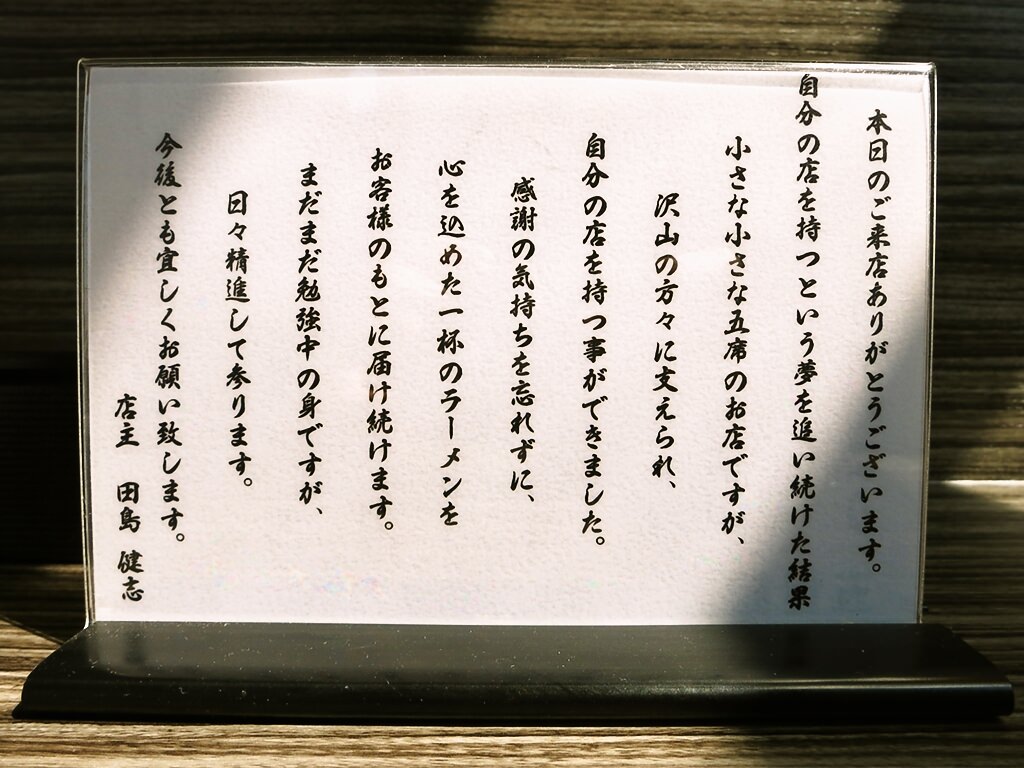 本日のご来店ありがとうございます。
自分の店を持つという夢を追い続けた結果
小さな小さな五席のお店ですが、
沢山の方々に支えられ、
自分の店を持つ事ができました。
感謝の気持ちを忘れずに、
心を込めた一杯のラーメンを
お客様のもとに届け続けます。
まだまだ勉強中の身ですが、
日々精進して参ります。
今後とも宜しくお願い致します。
店主 田島 健志